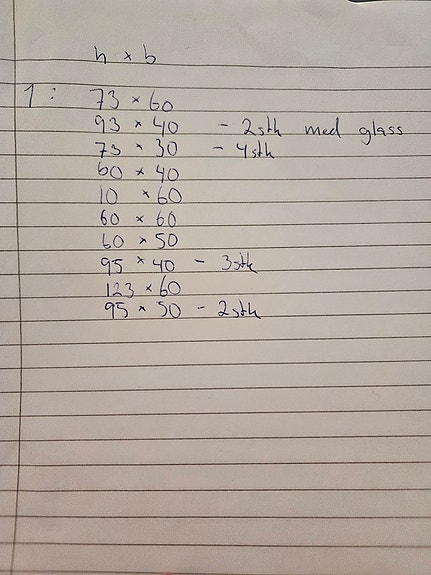 h x b
1: 73 x 60
93 x 40 - 2stk med glass
73 x 30 - 4stk
60 x 40
10 x 60
60 x 60
60 x 50
95 x 40 - 3stk
123 x 60
95 x 50 - 2stk